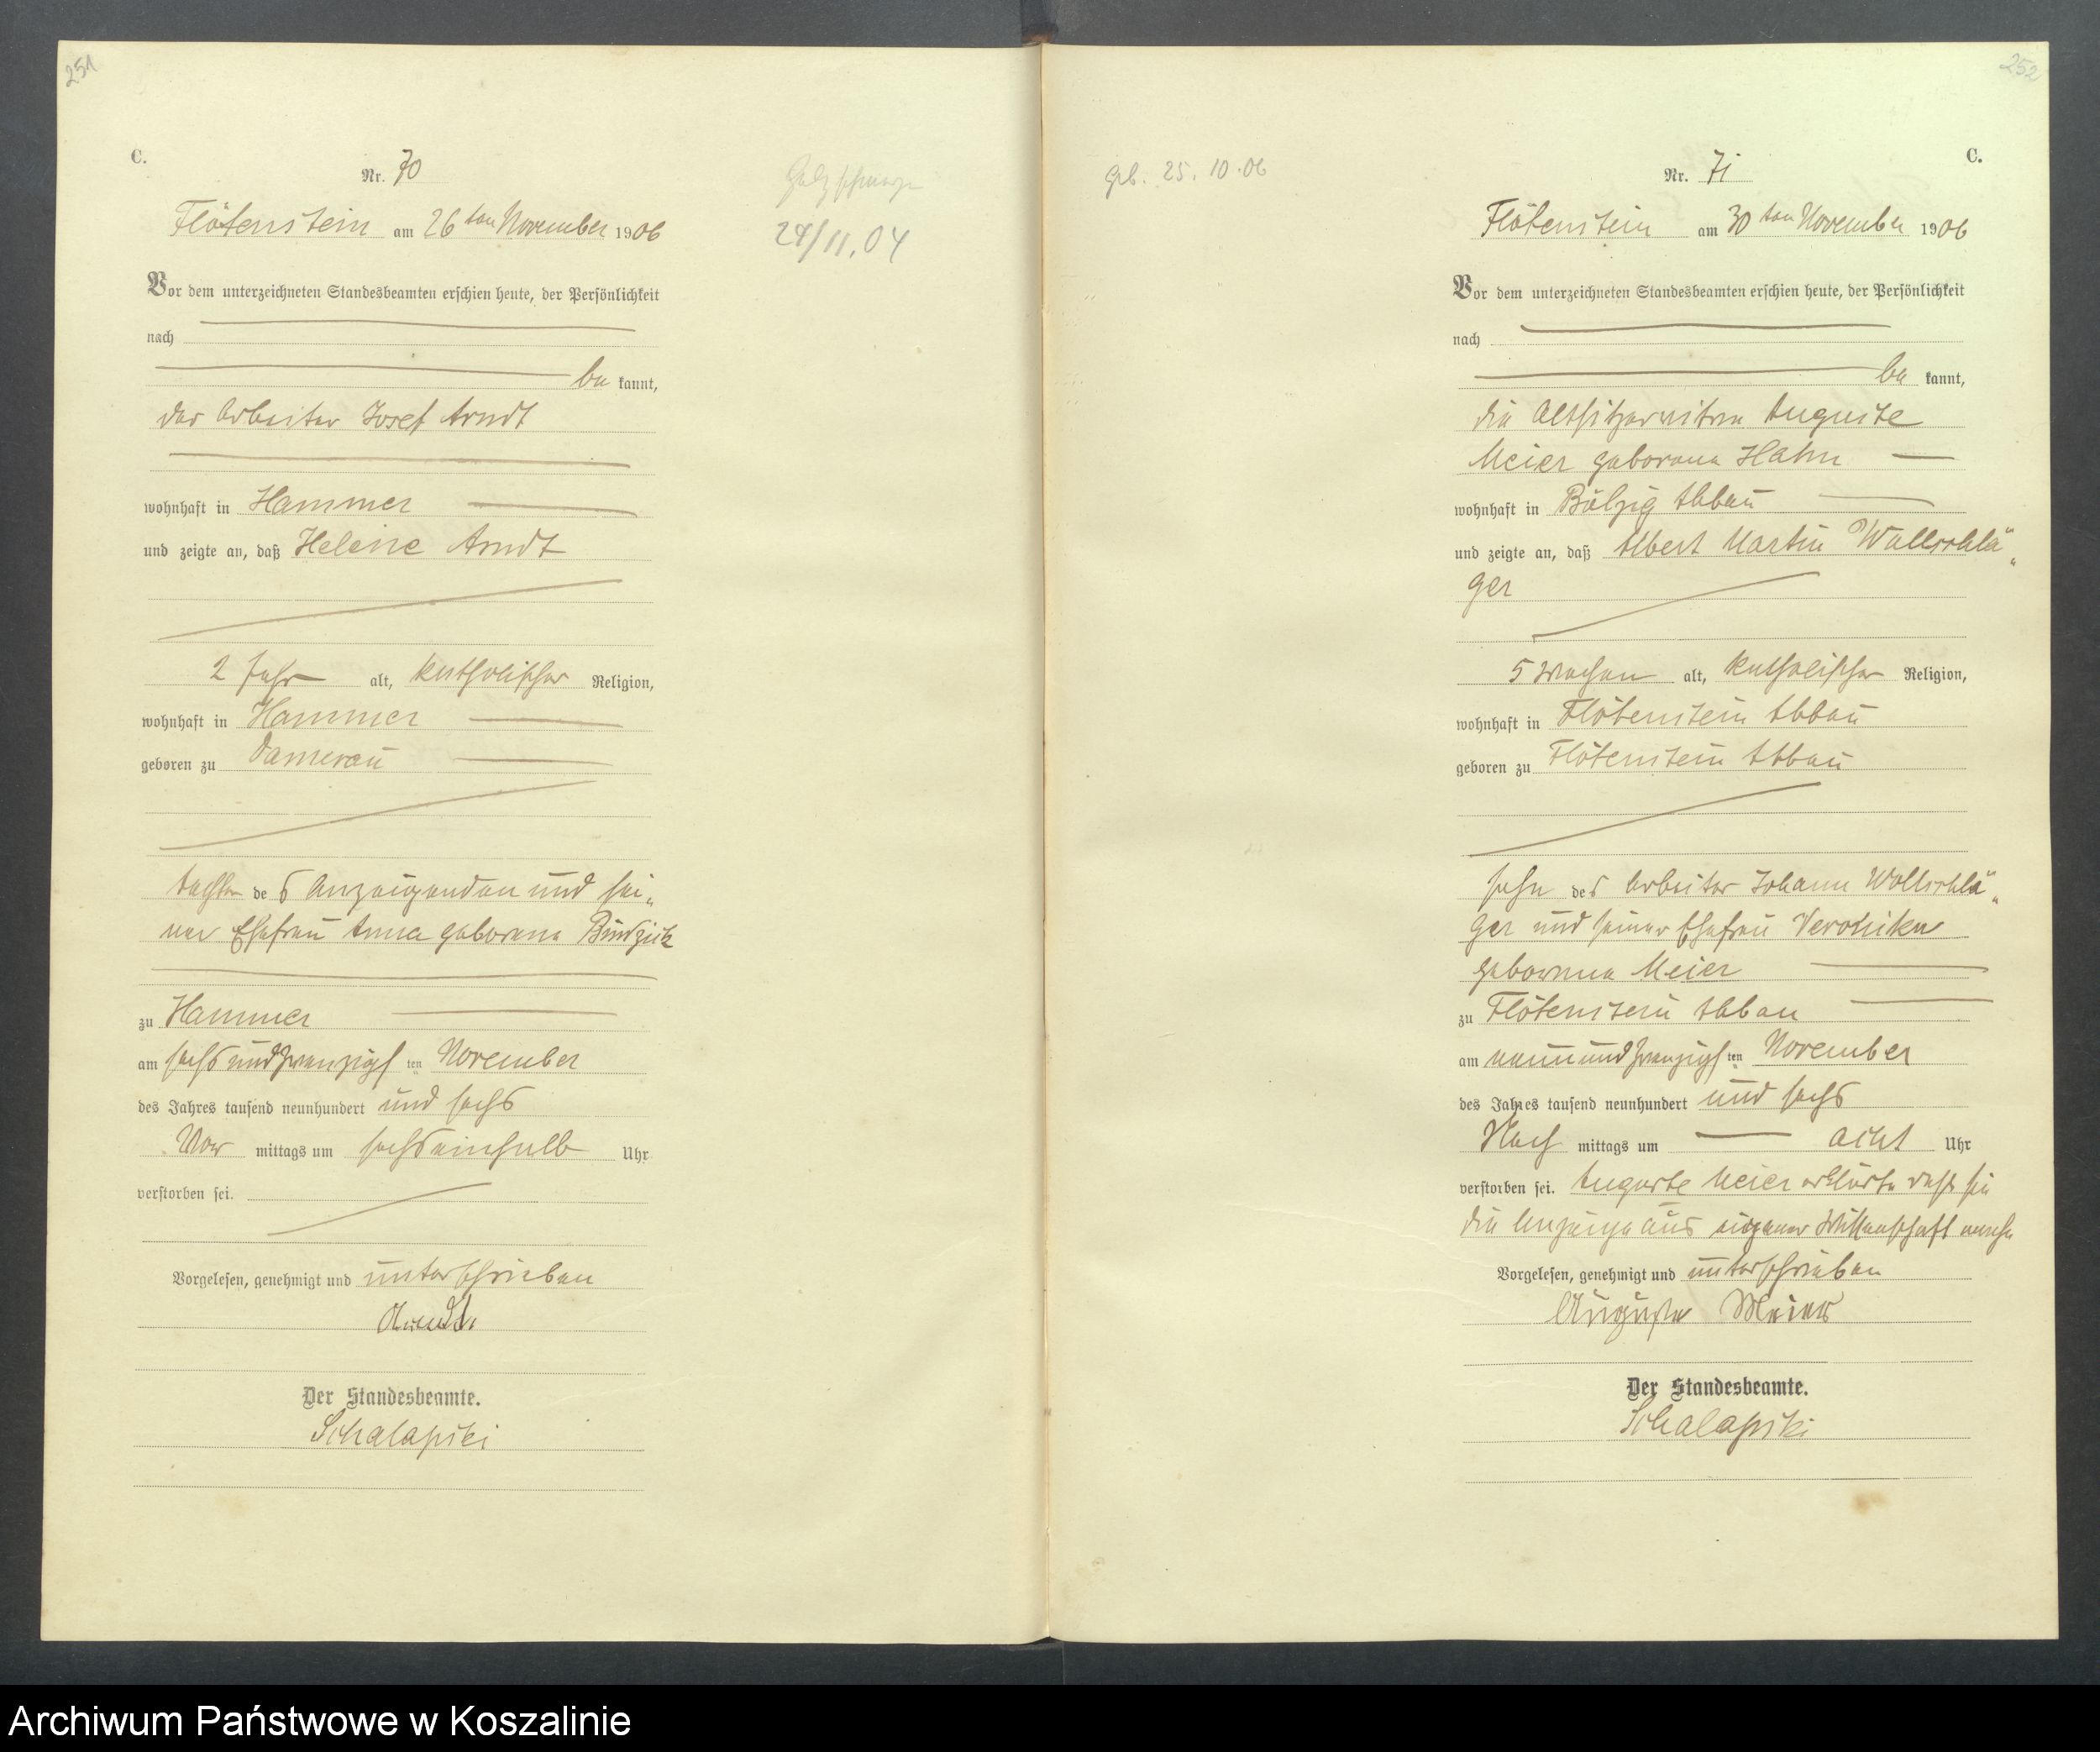 251
C.
Nr. 70
24/11.04
Flötenstein am 26ten November 1906
Vor dem unterzeichneten Standesbeamten erschien heute, der Persönlichkeit
nach
be kannt,
der Arbeiter Josef Arndt
wohnhaft in Hammer
und zeigte an, daß Helene Arndt
2 Jahr alt, katholischer Religion,
wohnhaft in Hammer
geboren zu Damerau
Tochter des Anzeigenden und sei„
ner Ehefrau Anna geborene
zu Hammer
am sechsundzwanzigsten November
des Jahres tausend neunhundert und sechs
Vor mittags um sechseinhalb Uhr
verstorben sei.
Vorgelesen, genehmigt und unterschrieben
Arndt.
Der Standesbeamte.
Schalapski
252
C.
geb. 25.10.06
Nr. 71
Flötenstein am 30ten November 1906
Vor dem unterzeichneten Standesbeamten erschien heute, der Persönlichkeit
nach
be kannt,
die Altsitzerwitwe Auguste
Meier geborene Hahn
wohnhaft in Bölzig Abbau
und zeigte an, daß Albert Martin Wollschlä„
ger
5 Wochen alt, katholischer Religion,
wohnhaft in Flötenstein Abbau
geboren zu Flötenstein Abbau
Sohn des Arbeiter Johann Wollschlä„
ger und seiner Ehefrau Veronika
geborene Meier
zu Flötenstein Abbau
am neunundzwanzigsten November
des Jahres tausend neunhundert und sechs
Nach mittags um acht Uhr
verstorben sei. Auguste Meier erklärte daß sie
die Anzeige aus eigener Wissenschaft mache
Vorgelesen, genehmigt und unterschrieben
Auguste Meier
Der Standesbeamte.
Schalapski
Archiwum Państwowe w Koszalinie